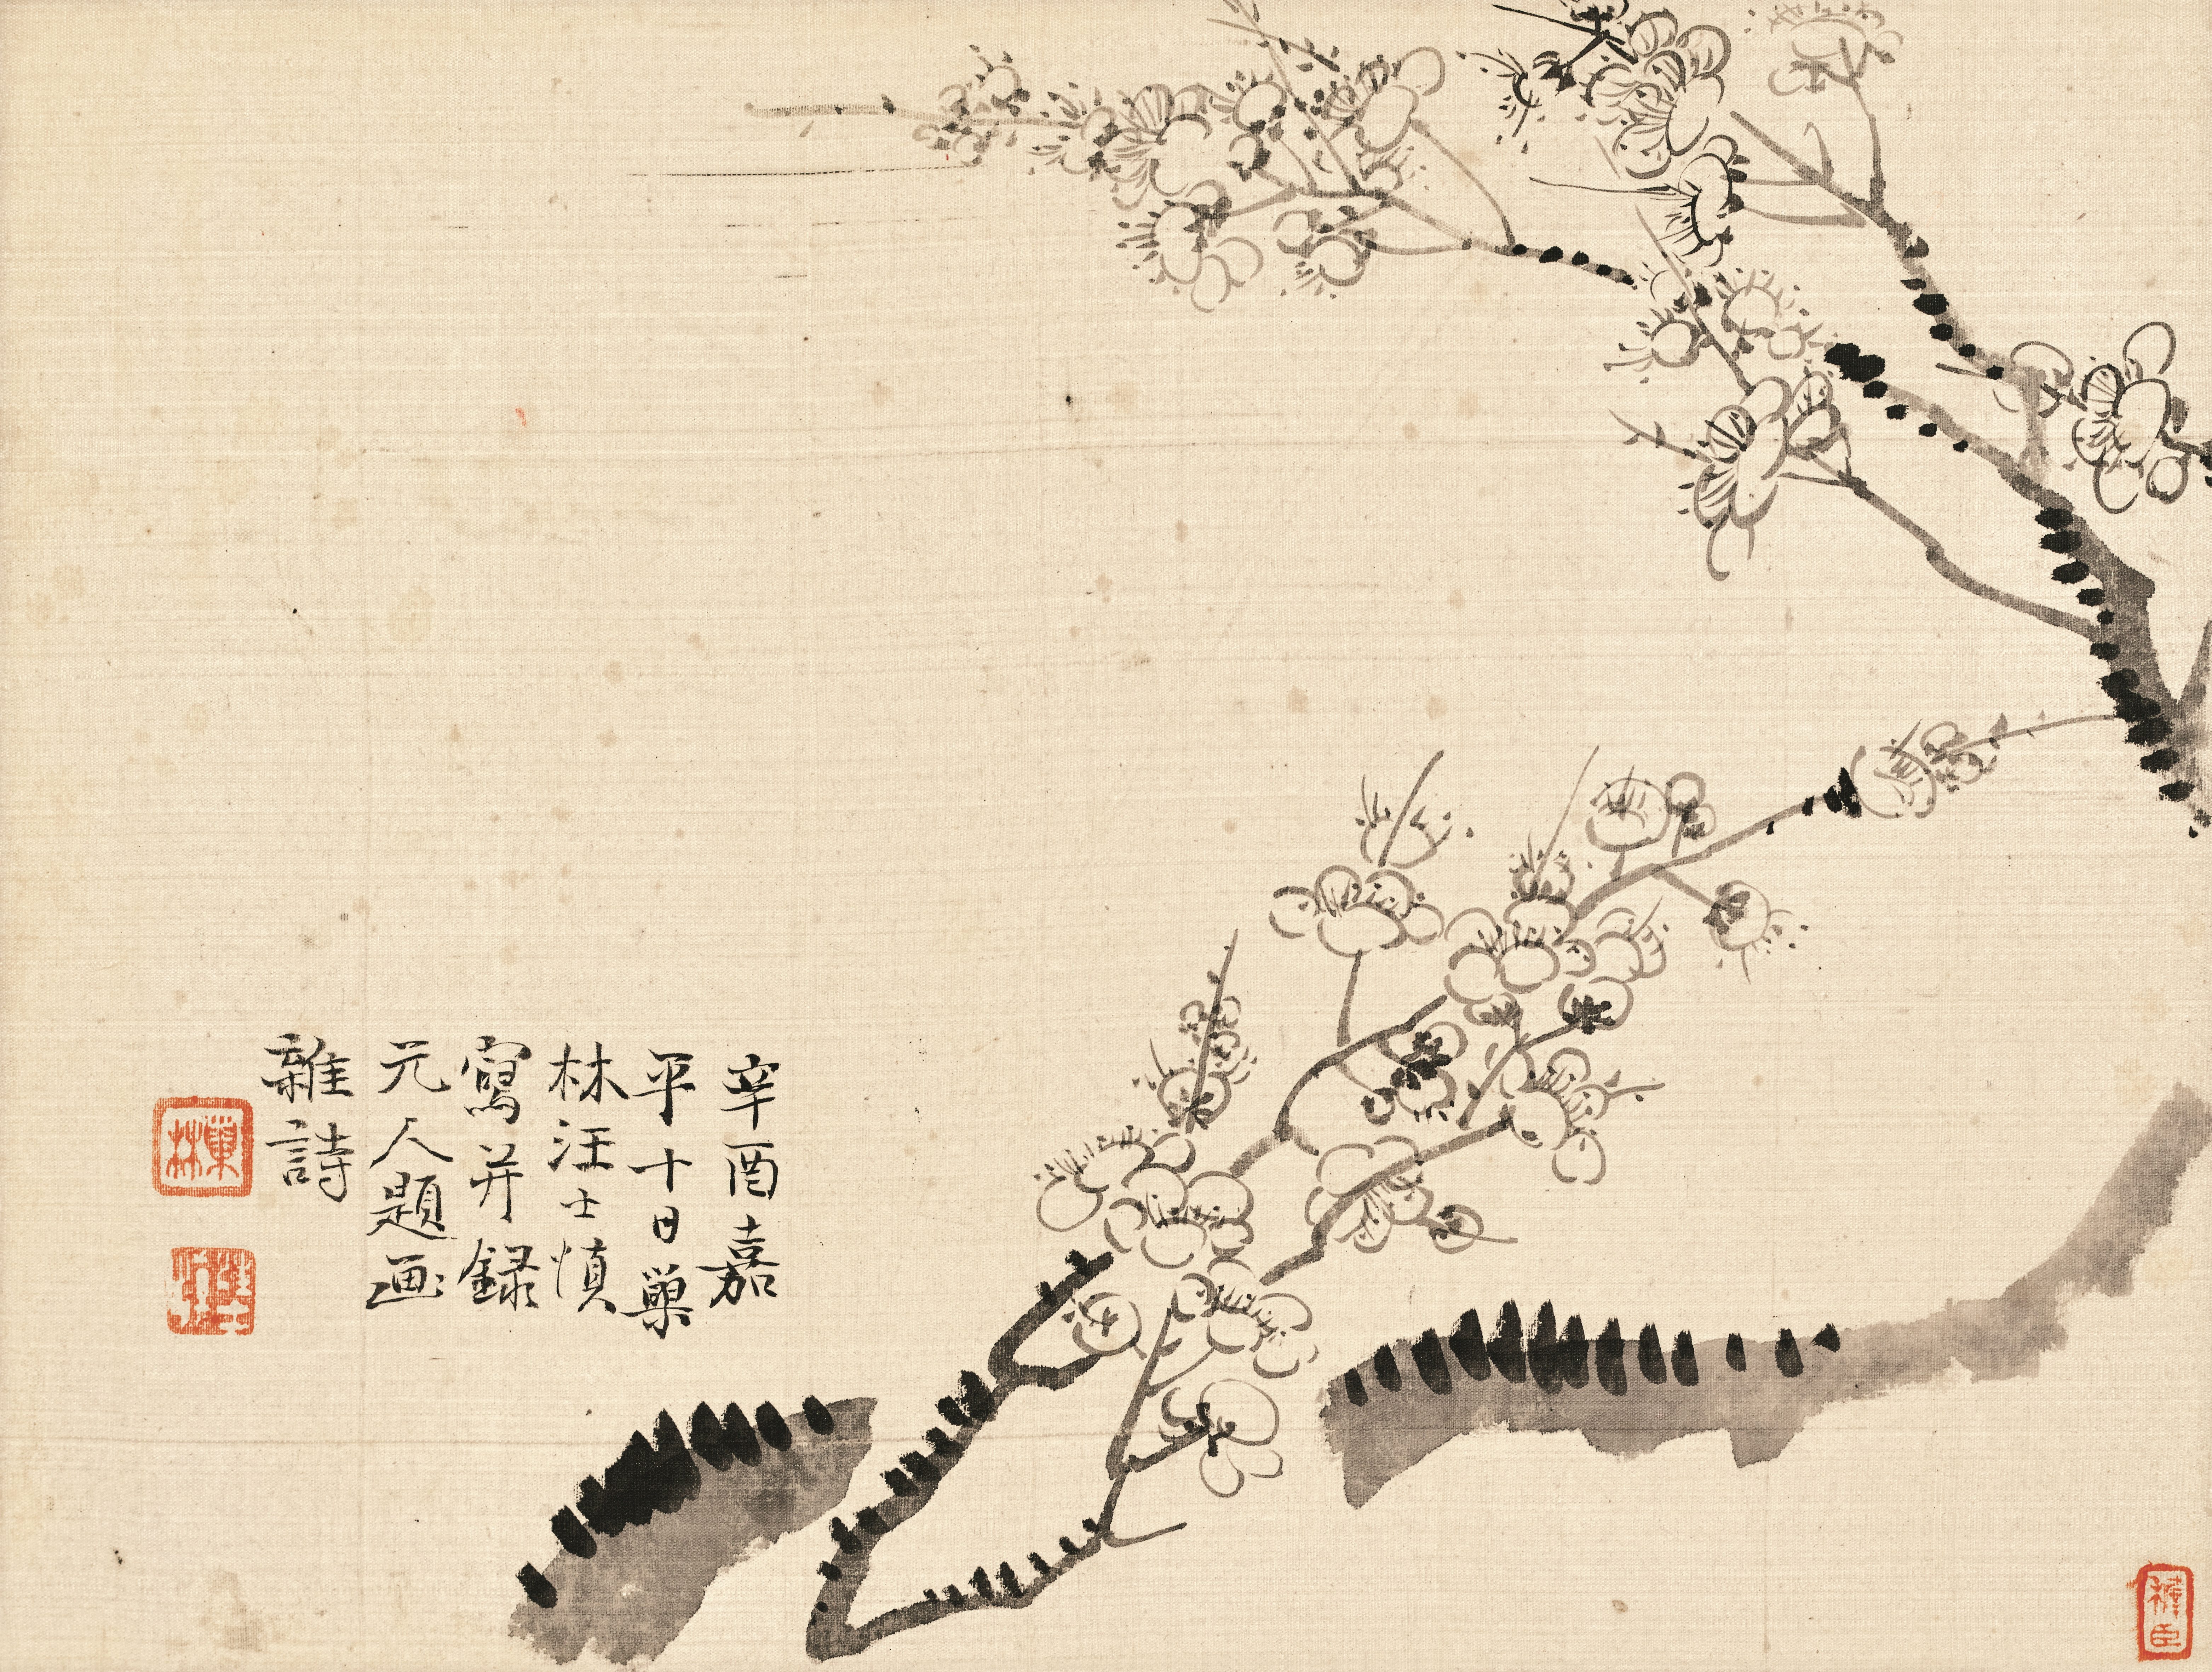 辛酉嘉
平十日巢
林汪士慎
寫并録
元人題画
雜詩
巢林